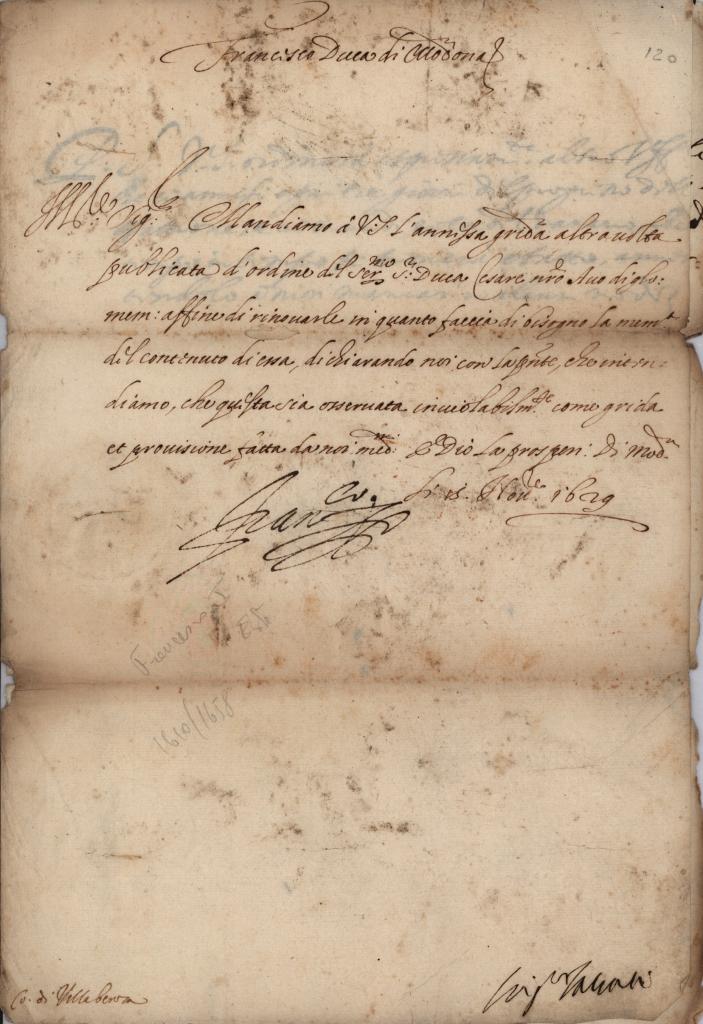 Francisco Duca di Modona
120
Sig.re Mandiamo à V.S. l'annessa grida altra volta
publicata d'ordine del Ser.mo S.r Duca Cesare nr̃o Avo di glo:
mem: affine di rinovarle in quanto faccia di bisogno la mem.a
del contenuto di essa, dichiarando noi con la pñte, che inten-
diamo, che questa sia osservata inviolabilm.te come grida
et provisione fatta da noi med.mi E Dio la prosperi. Di Mod.a
li 15 Nov.re 1629
Fran.co
Francesco I
Est.
1610/1658
Co. di Villabona